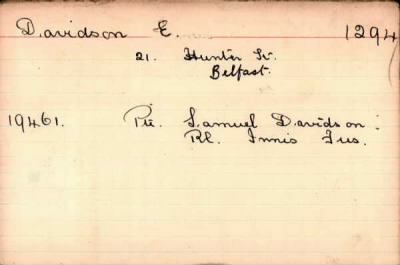 Davidson E. 1294
21. Hunter St.
Belfast.
19461. Pte. Samuel Davidson:
Rl. Innis Fus.